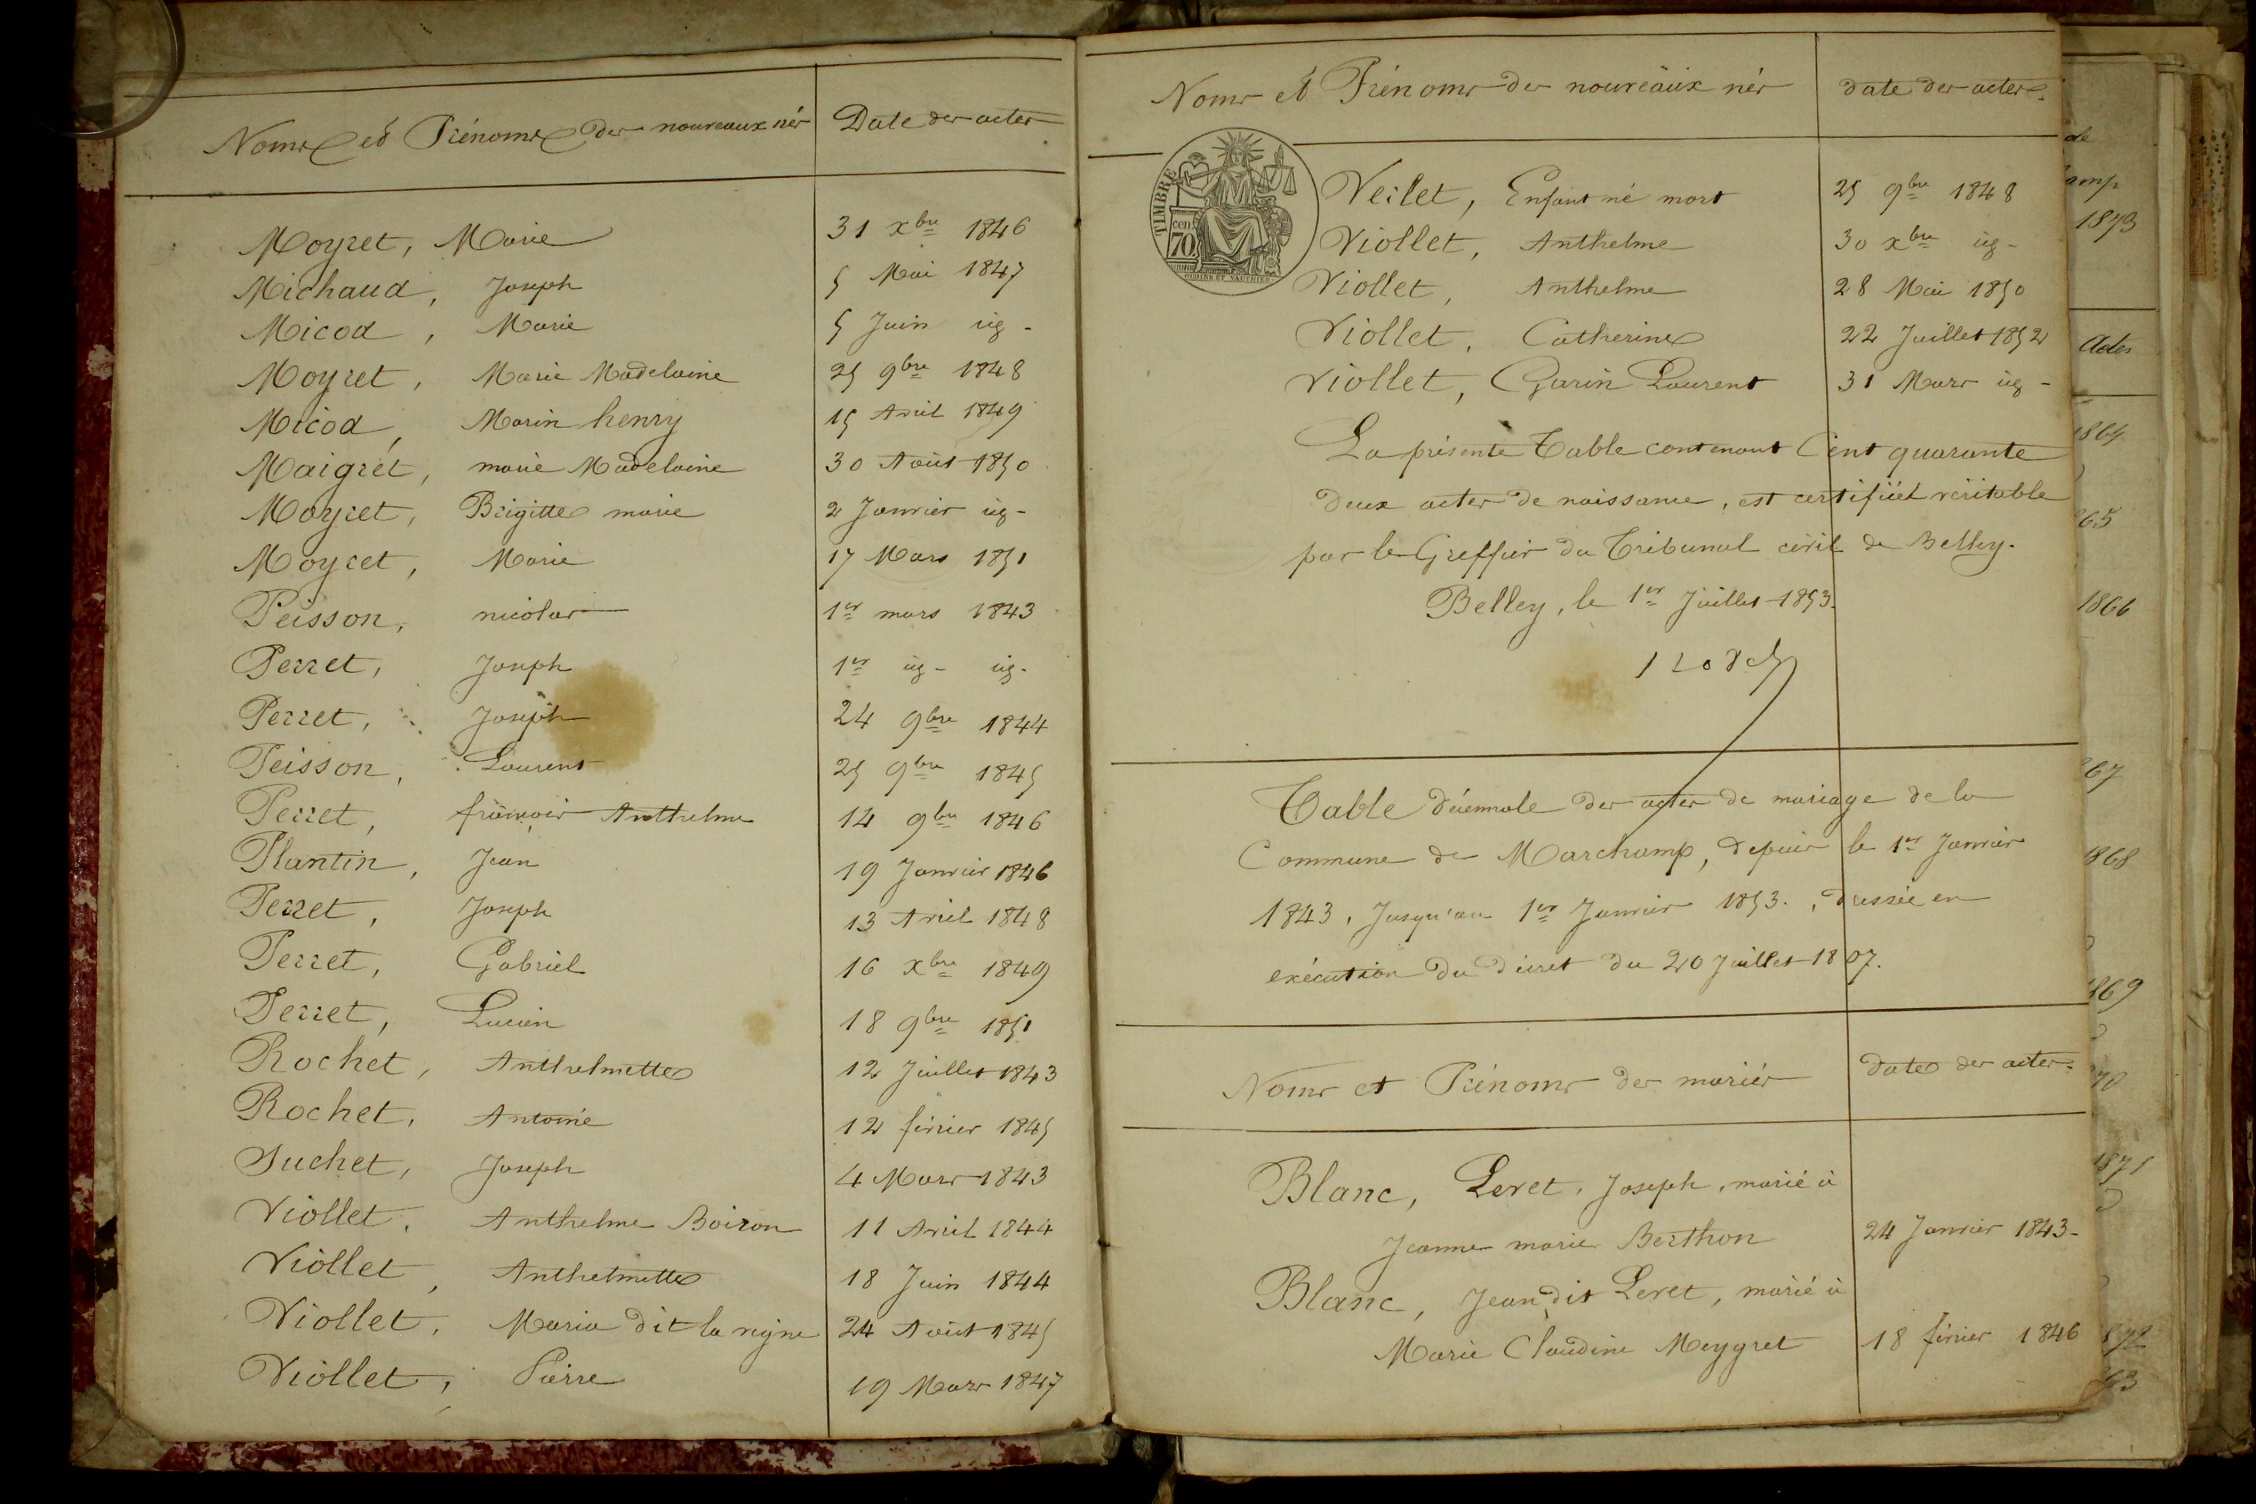 Noms et Prénoms des nouveaux nés
Date des actes
Moyret, Marie 31 xbre 1846
Michaud, Joseph 5 Mai 1847
Micod, Marie 5 Juin iig -
Moyret, Marie Madelaine 25 9bre 1848
Micod, Marin henry 15 Avril 1849
Maigret, marie Madelaine 30 Août 1850
Moyret, Brigitte marie 2 Janvier iig -
Moyret, Marie 17 Mars 1851
Peisson, nicolas 1er mars 1843
Perret, Joseph 1er iig - iig -
Perret, Joseph 24 9bre 1844
Peisson, Laurent 25 9bre 1845
Perret, françois Anthelme 14 9bre 1846
Plantin, Jean 19 Janvier 1846
Perret, Joseph 13 Avril 1848
Perret, Gabriel 16 xbre 1849
Perret, Lucien 18 9bre 1851
Rochet, Anthelmette 12 Juillet 1843
Rochet, Antoine 12 février 1845
Suchet, Joseph 4 Mars 1843
Viollet, Anthelme Boiron 11 Avril 1844
Viollet, Anthelmette 18 Juin 1844
Viollet, Maria dit la vigne 24 Août 1845
Viollet, Pierre 19 Mars 1847
Noms et Prénoms des nouveaux nés
date des actes.
TIMBRE
70 cen.
Veilet, Enfant né mort 25 9bre 1848
Viollet, Anthelme 30 xbre iig -
Viollet, Anthelme 28 Mai 1850
Viollet, Catherine 22 Juillet 1852
Viollet, Garin Laurent 31 Mars iig -
La présente Table contenant Cent quarante
deux actes de naissance, est certifiéé véritable
par le Greffier du Tribunal civil de Belley.
Belley, le 1er Juillet 1853.
Table décennale des actes de mariage de la
Commune de Marchamp, depuis le 1er Janvier
1843, Jusqu'au 1er Janvier 1853., dressée en
exécution du décret du 20 Juillet 1807.
Noms et Prénoms des mariés
date des actes.
Blanc, Levet, Joseph, marié à
Jeanne marie Berthon 24 Janvier 1843 -
Blanc, Jean dit Levet, marié à
Marie Claudine Meygret 18 février 1846
de
amp
1873
Actes
1864
865
1866
867
1868
1869
870
1871
872